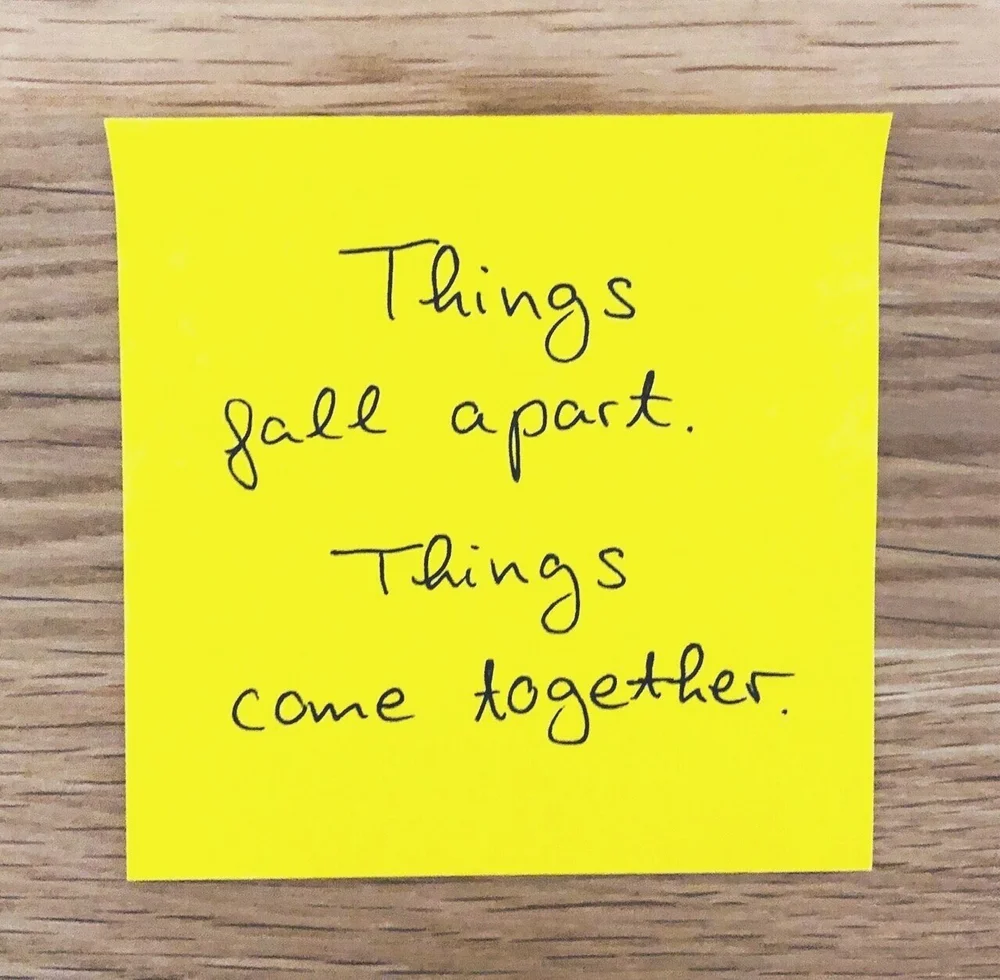 Things
fall apart.
Things
come together.